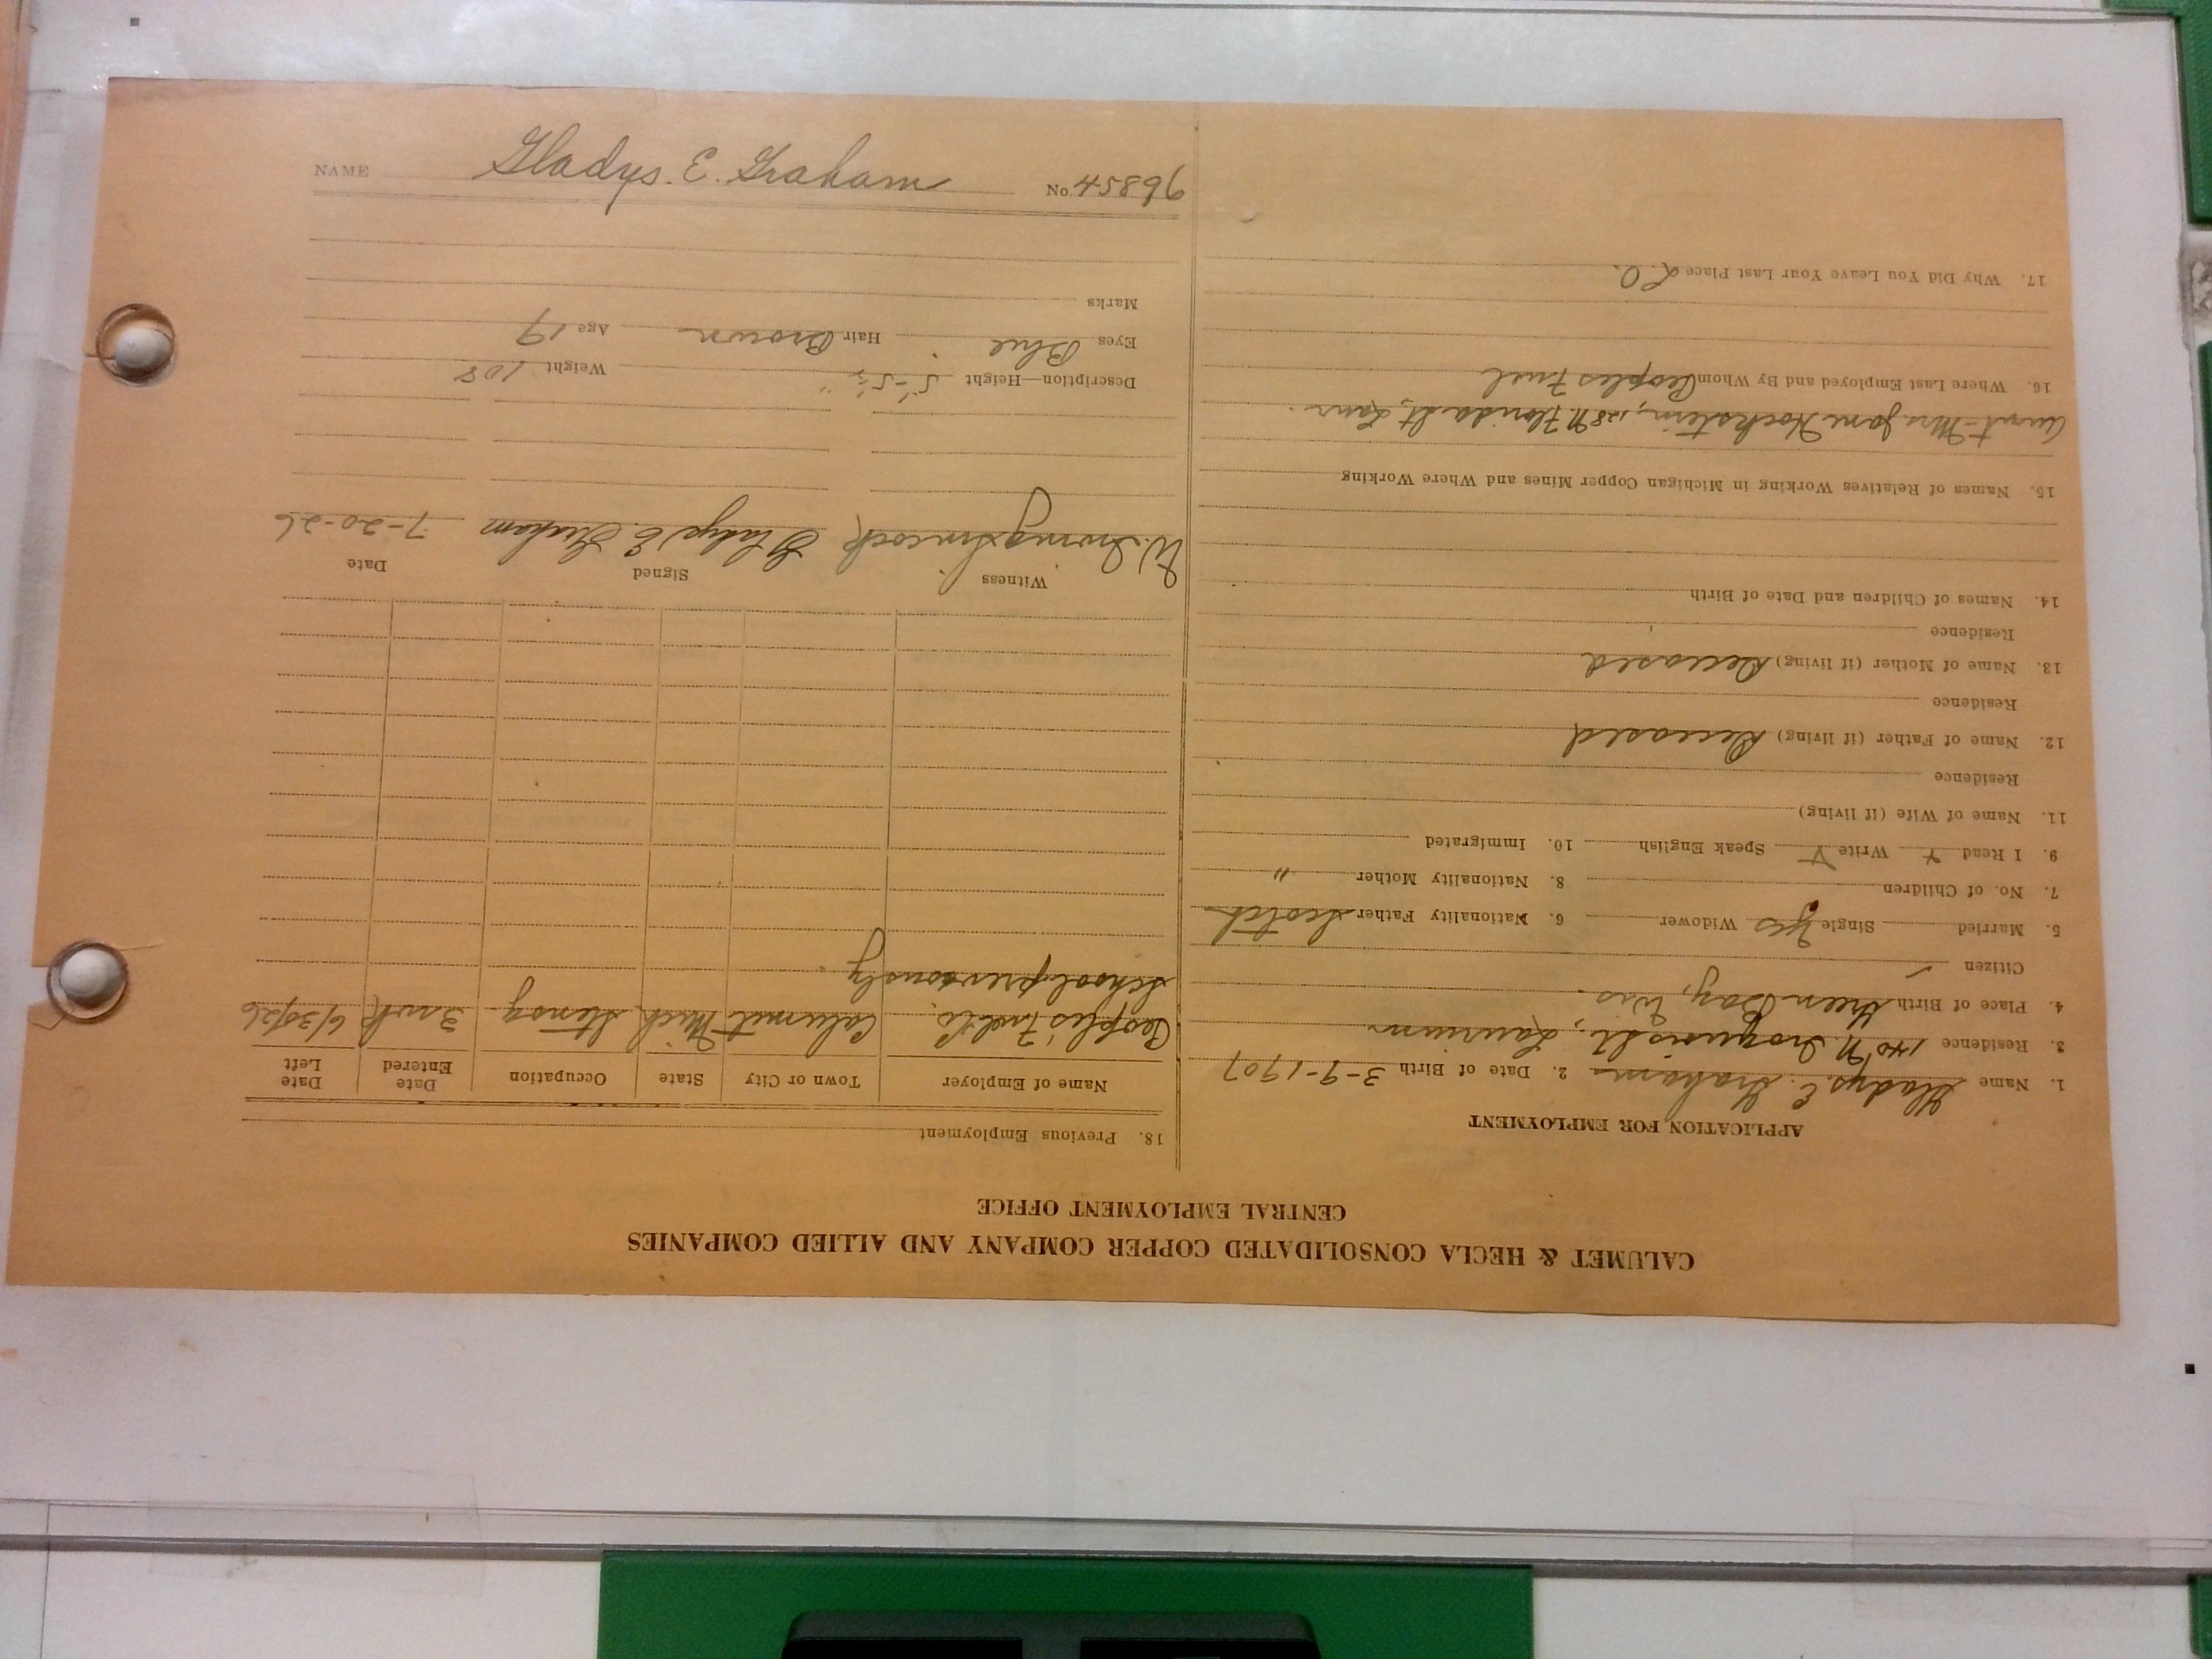 NAME Gladys. E. Graham No. 45896
CALUMET & HECLA CONSOLIDATED COPPER COMPANY AND ALLIED COMPANIES
CENTRAL EMPLOYMENT OFFICE
APPLICATION FOR EMPLOYMENT
1. Name Gladys. E. Graham 2. Date of Birth 3-9-1907
3. Residence 140 N. Iroquois St., Laurium
4. Place of Birth Green Bay, Wis.
Citizen
5. Married Single Yes Widower 6. Nationality Father Scotch
7. No. of Children 8. Nationality Mother "
9. I Read Write Speak English 10. Immigrated
11. Name of Wife (if living)
Residence
12. Name of Father (if living) Deceased
Residence
13. Name of Mother (if living) Deceased
Residence
14. Names of Children and Date of Birth
15. Names of Relatives Working in Michigan Copper Mines and Where Working
Aunt-Mrs Jane Hockstein, 128 N. Florida St, Laur.
16. Where Last Employed and By Whom Peoples Fuel
17. Why Did You Leave Your Last Place L.O.
18. Previous Employment
Name of Employer Town or City State Occupation Date Entered Date Left
Peoples Fuel Co. Calumet Mich Stenog. 3 wk 6/30/26
School previously.
Witness Signed Date
W. Irving Gladys E. Graham 7-20-26
Description—Height 5'-5½" Weight 108
Eyes Blue Hair Brown Age 19
Marks